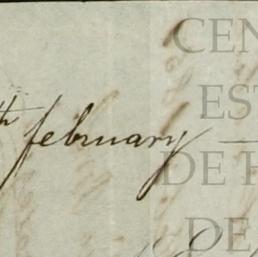 CEN
EST
th february
DE H
DE